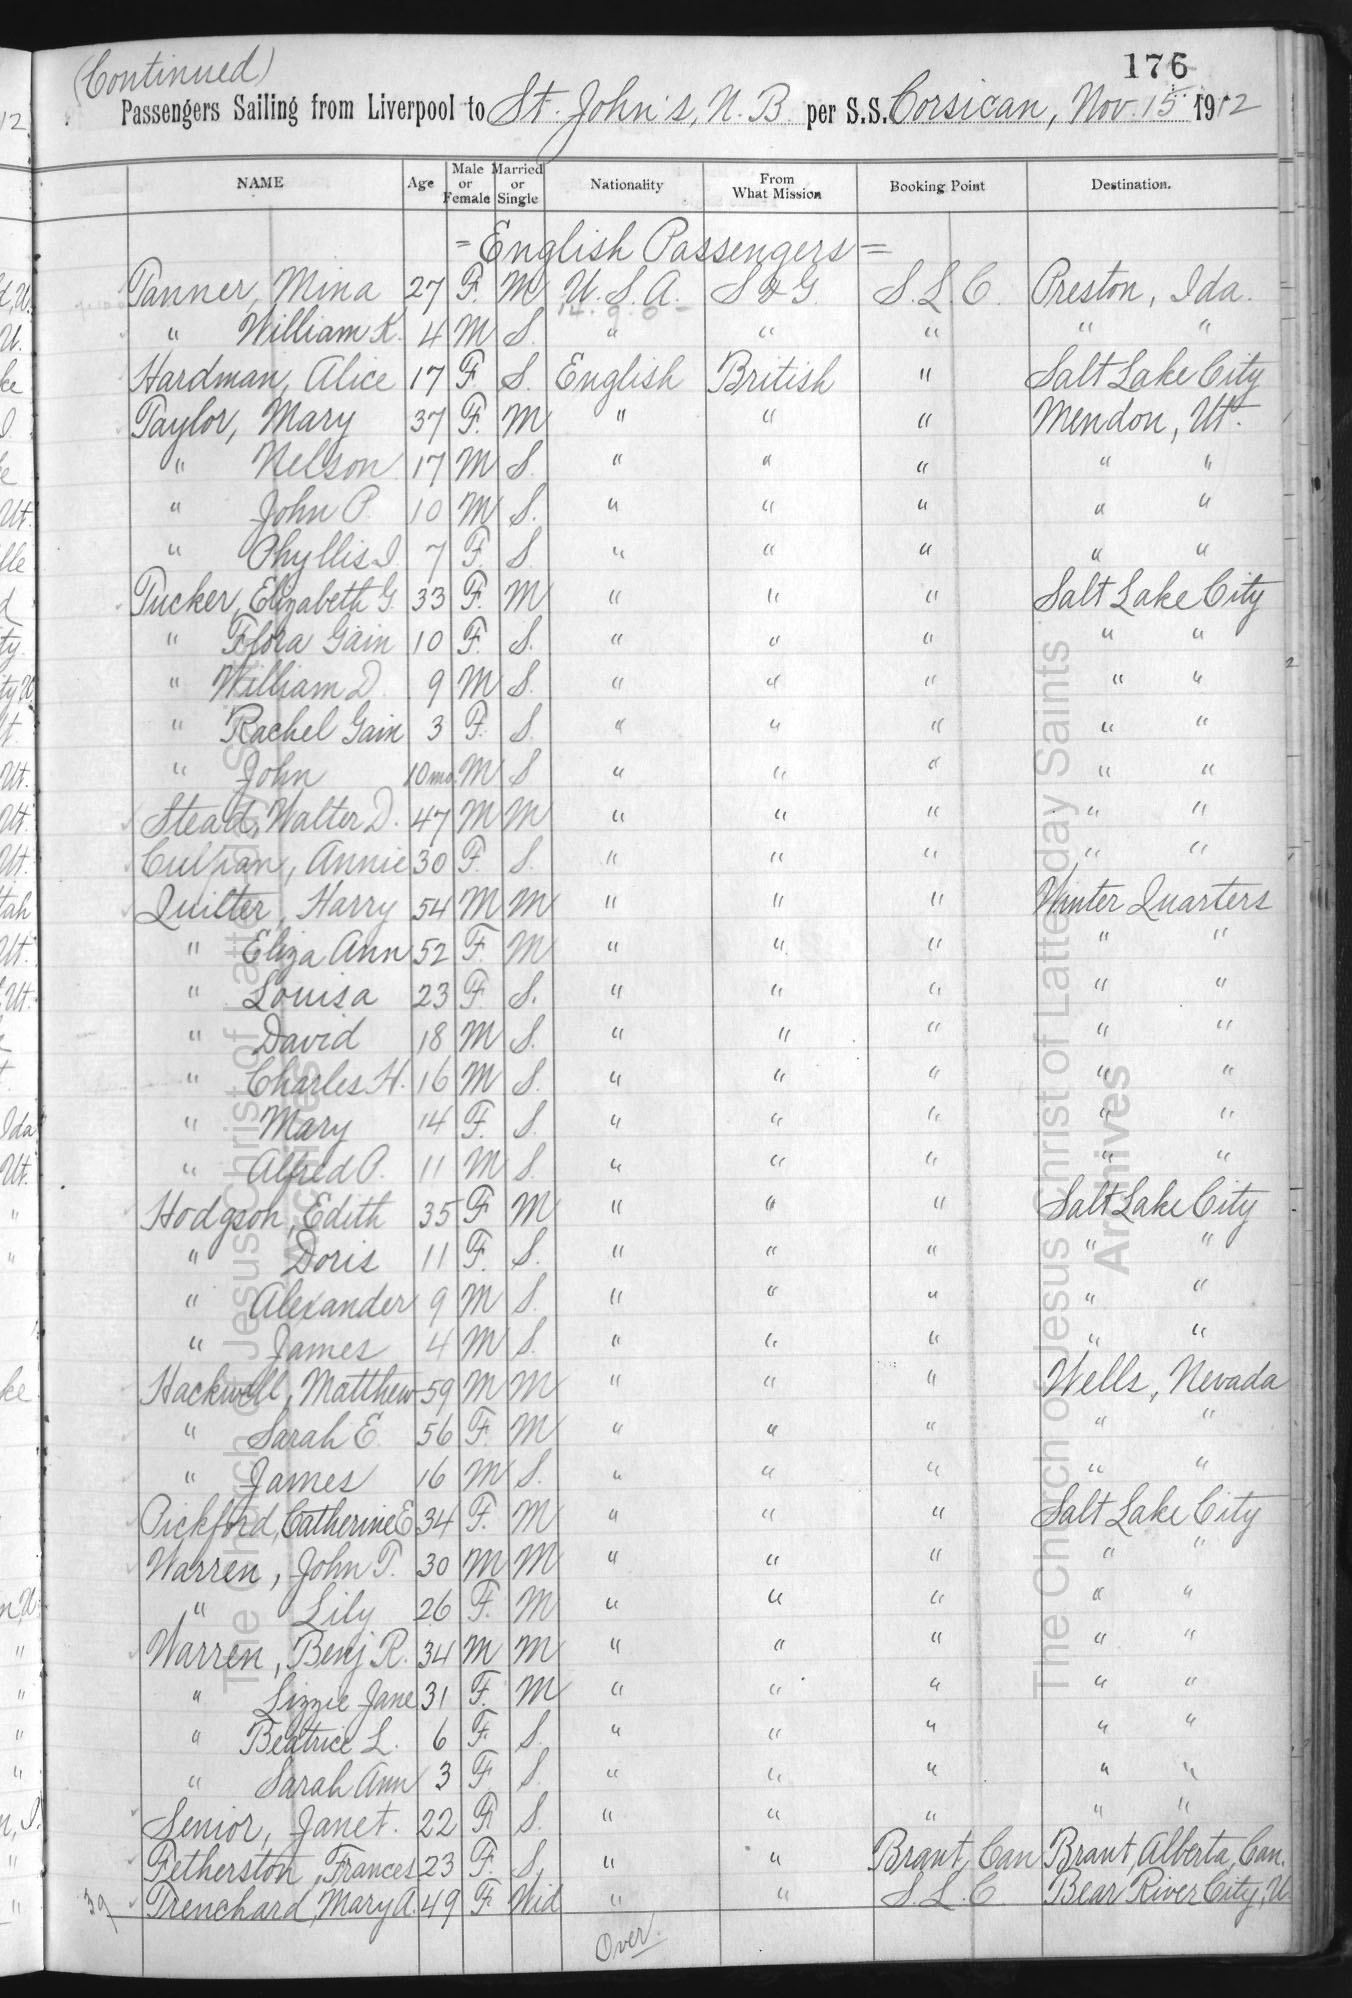 (Continued)
176
Passengers Sailing from Liverpool to St. John's, N.B. per S.S. Corsican, Nov. 15 1912
NAME Age Male or Female Married or Single Nationality From What Mission Booking Point Destination.
= English Passengers =
Tanner, Mina 27 F. M U.S.A. S & G. S.L.C. Preston, Ida.
" William K. 4 M S. " " " " "
Hardman, Alice 17 F. S. English British " Salt Lake City
Taylor, Mary 37 F. M " " " Mendon, Ut.
" Nelson 17 M S. " " " " "
" John P. 10 M S. " " " " "
" Phyllis I. 7 F. S. " " " " "
Tucker, Elizabeth G. 33 F. M " " " Salt Lake City
" Flora Gain 10 F. S. " " " " "
" William D. 9 M S. " " " " "
" Rachel Gain 3 F. S. " " " " "
" John 10 mo. M S " " " " "
Stead, Walter D. 47 M M " " " " "
Culpan, Annie 30 F. S. " " " " "
Quilter, Harry 54 M M " " " Winter Quarters
" Eliza Ann 52 F. M " " " " "
" Louisa 23 F S. " " " " "
" David 18 M S. " " " " "
" Charles H. 16 M S. " " " " "
" Mary 14 F. S. " " " " "
" Alfred P. 11 M S. " " " " "
Hodgson, Edith 35 F M " " " Salt Lake City
" Doris 11 F. S. " " " " "
" Alexander 9 M S. " " " " "
" James 4 M S. " " " " "
Hackwell, Matthew 59 M M " " " Wells, Nevada
" Sarah E. 56 F. M " " " " "
" James 16 M S. " " " " "
Pickford, Catherine E 34 F. M " " " Salt Lake City
Warren, John T. 30 M M " " " " "
" Lily 26 F. M " " " " "
Warren, Benj R. 34 M M " " " " "
" Lizzie Jane 31 F. M " " " " "
" Beatrice L. 6 F S. " " " " "
" Sarah Ann 3 F S. " " " " "
Senior, Janet. 22 F. S. " " " " "
Fetherston, Frances 23 F. S. " " Brant, Can Brant, Alberta, Can.
39 Trenchard, Mary A. 49 F Wid " " S.L.C Bear River City, U.
Over.
The Church of Jesus Christ of Latter-day Saints
Archives
The Church of Jesus Christ of Latter-day Saints
Archives